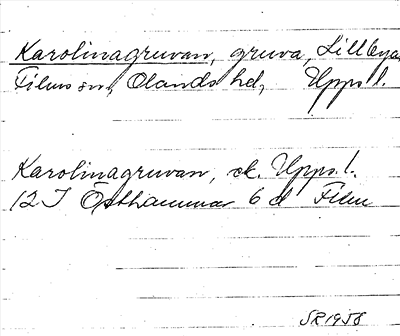 Karolinagruvan, gruva, Lillbyn
Films sn, Olands hd, Upps. l.
Karolinagruvan, ek. Upps. l.
12 I Östhammar 6 d Film
SR 1958